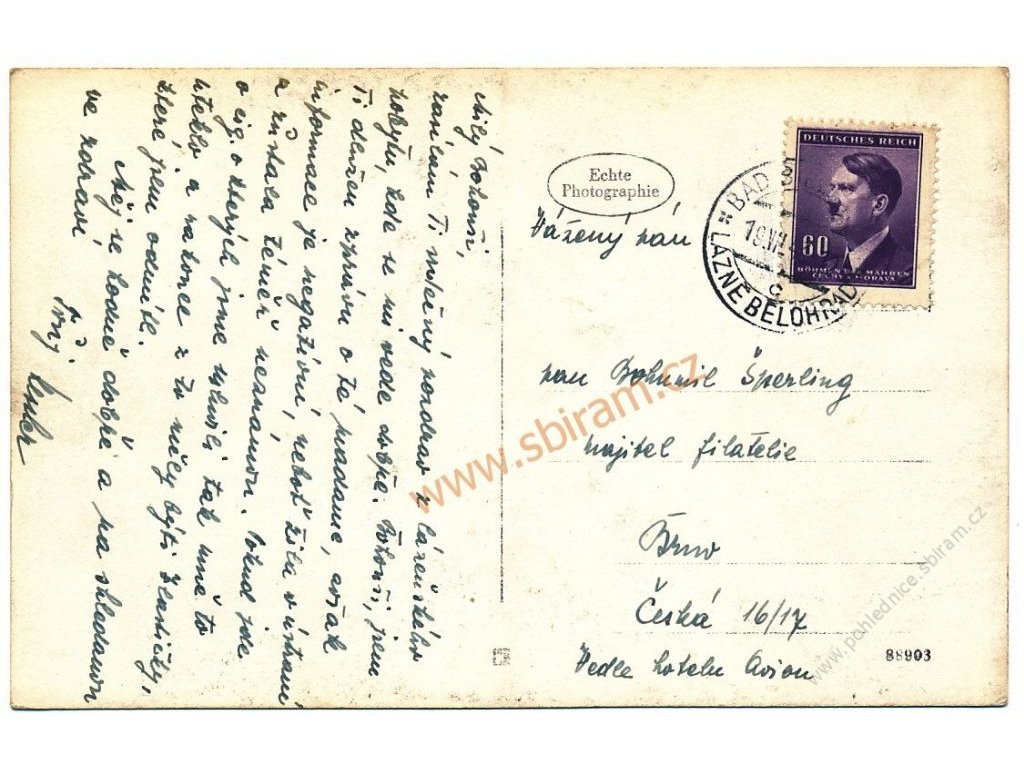 Milý Bohouši,
zasílám Ti srdečný pozdrav z lázeňského
pobytu, kde se mi vede dobře. Bohouši, jsem
Ti dlužen zprávu o té madame, avšak
informace je negativní, neboť žila v ústraní
a zůstala téměř neznámou. Pokud jde
o cig. o kterých jsme mluvili tak mně to
uteklo a nakonec z to měly býti Zentky,
které jsem odmítl.
Měj se hodně dobře a na shledanou
ve zdraví
Tvůj
Echte
Photographie
DEUTSCHES REICH
60
BÖHMEN U. MÄHREN
ČECHY A MORAVA
BAD
19.VII
c
LÁZNĚ BĚLOHRAD
Vážený pan
pan Bohumil Šperling
majitel filatelie
Brno
Česká 16/17
Vedle hotelu Avion
88903
www.sbiram.cz
www.pohlednice.sbiram.cz